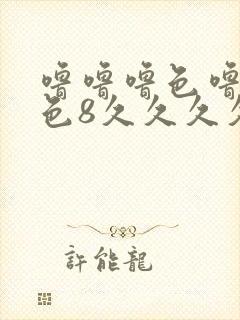 噜噜噜色噜
色8久久久久
許能龍